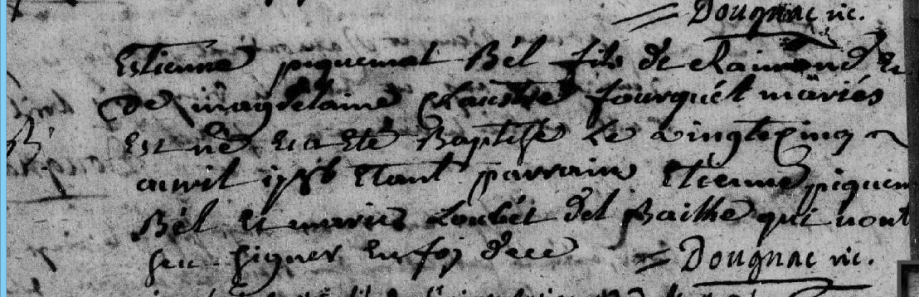 Dougnac vic.
Estienne piquemal Bél fils de Raimond et
de magdelaine fourquét mariés
Est né Et a Eté Baptisé Le vingt cinq
avril 1786 Etant parrain Etienne piquem
Bél Et marie Loubét del Bailhe qui nont
sceu signer En foj dece Dougnac vic.